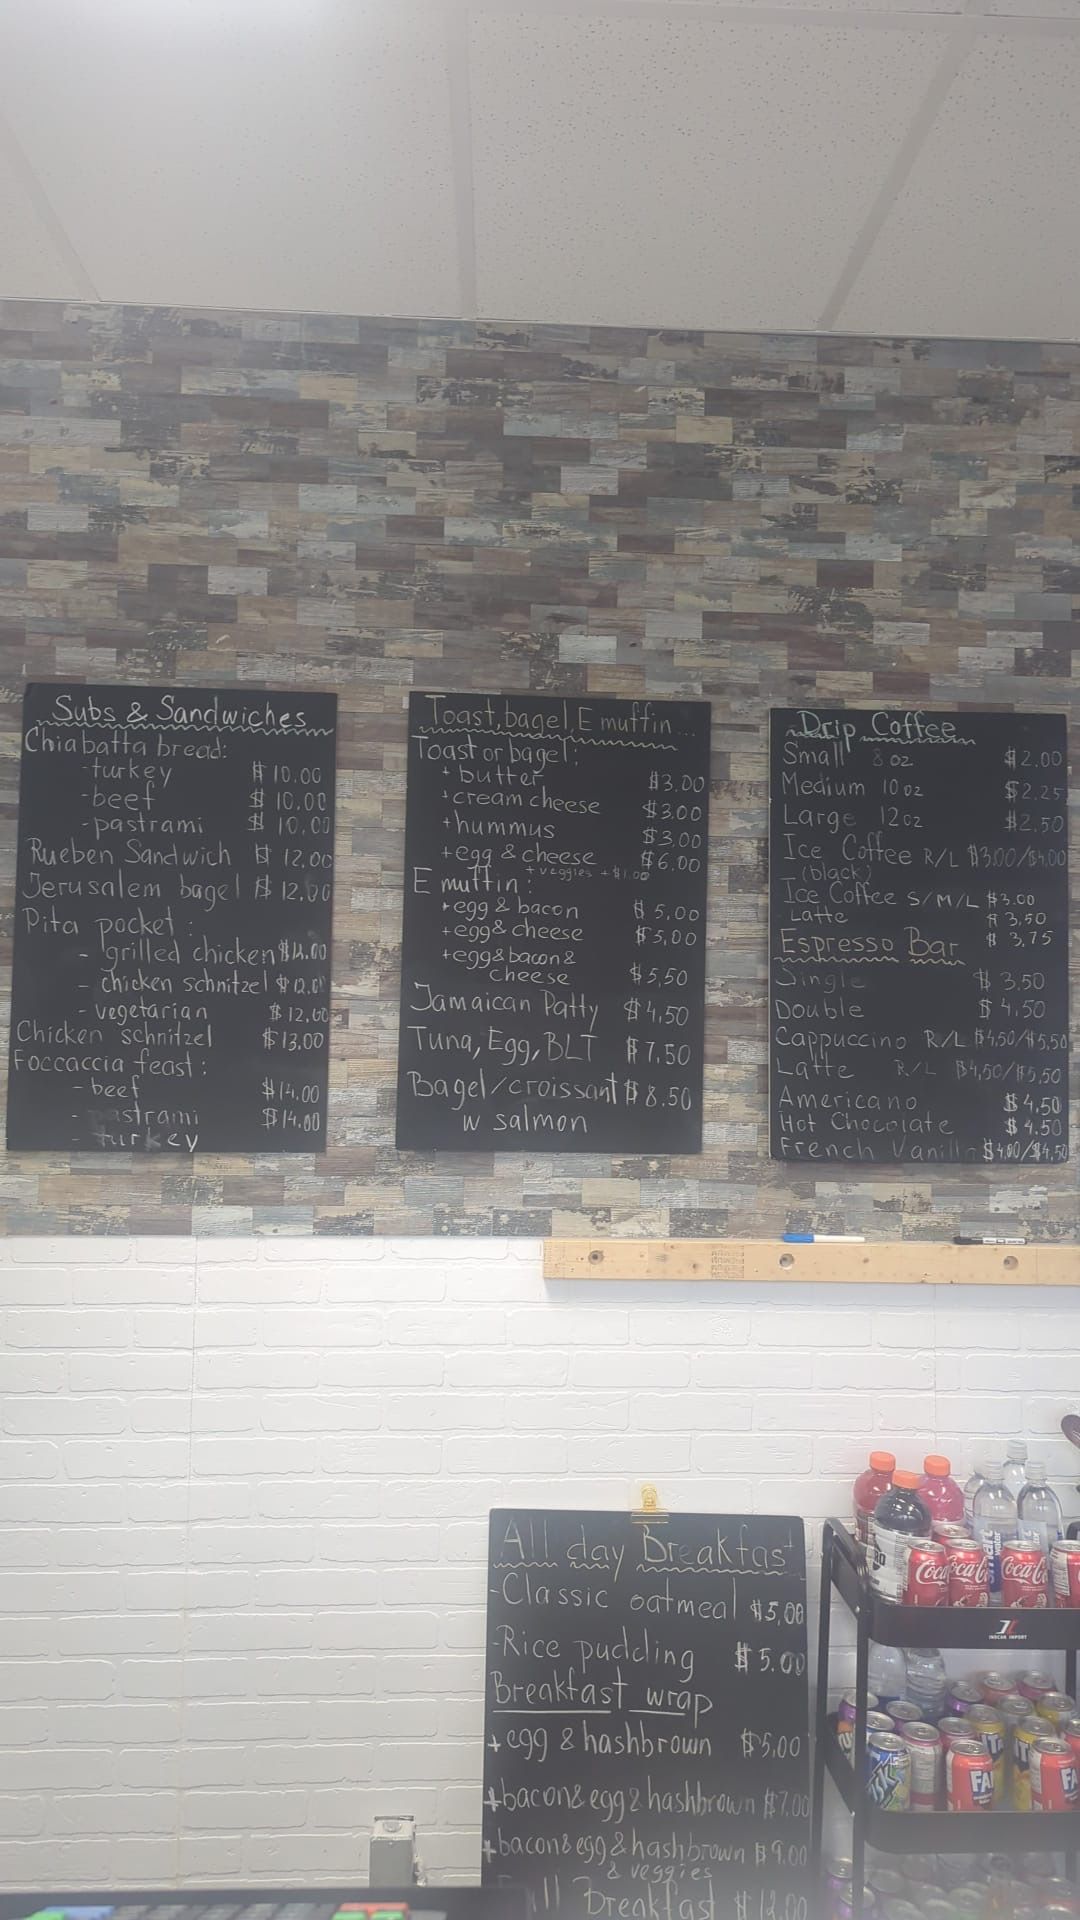 Subs & Sandwiches
Chiabatta bread:
-turkey $10.00
-beef $10.00
-pastrami $10.00
Rueben Sandwich $12.00
Jerusalem bagel $12.00
Pita pocket:
- grilled chicken
- chicken schnitzel $12.00
- vegetarian $12.00
Chicken schnitzel $13.00
Foccaccia feast:
- beef $14.00
- astrami $14.00
- turkey
Toast, bagel, E muffin...
Toast or bagel:
+ butter $3.00
+ cream cheese $3.00
+ hummus $3.00
+ egg & cheese $6.00
+ veggies + $1.00
E muffin:
+egg & bacon $5.00
+egg & cheese $5.00
+egg & bacon &
cheese $5,50
Jamaican Patty $4,50
Tuna, Egg, BLT $7.50
Bagel/croissant $8.50
w salmon
Drip Coffee
Small 8 oz $2.00
Medium 10 oz $2.25
Large 12 oz $2.50
Ice Coffee R/L $3.00/$4.00
(black)
Ice Coffee S/M/L $3.00
Latte $3,50
$3,75
Espresso Bar
Single $3,50
Double $4,50
Cappuccino R/L $4,50/$5,50
Latte R/L $4,50/$5,50
Americano $4,50
Hot Chocolate $4.50
French Vanilla $4.00/$4,50
All day Breakfast
-Classic oatmeal $5,00
-Rice pudding $5.00
Breakfast wrap
+egg & hashbrown $5,00
+bacon & egg & hashbrown $7.00
+bacon & egg & hashbrown $9.00
& veggies
Breakfast $12.00
Coca-Cola
smart
water
INSCAN IMPORT